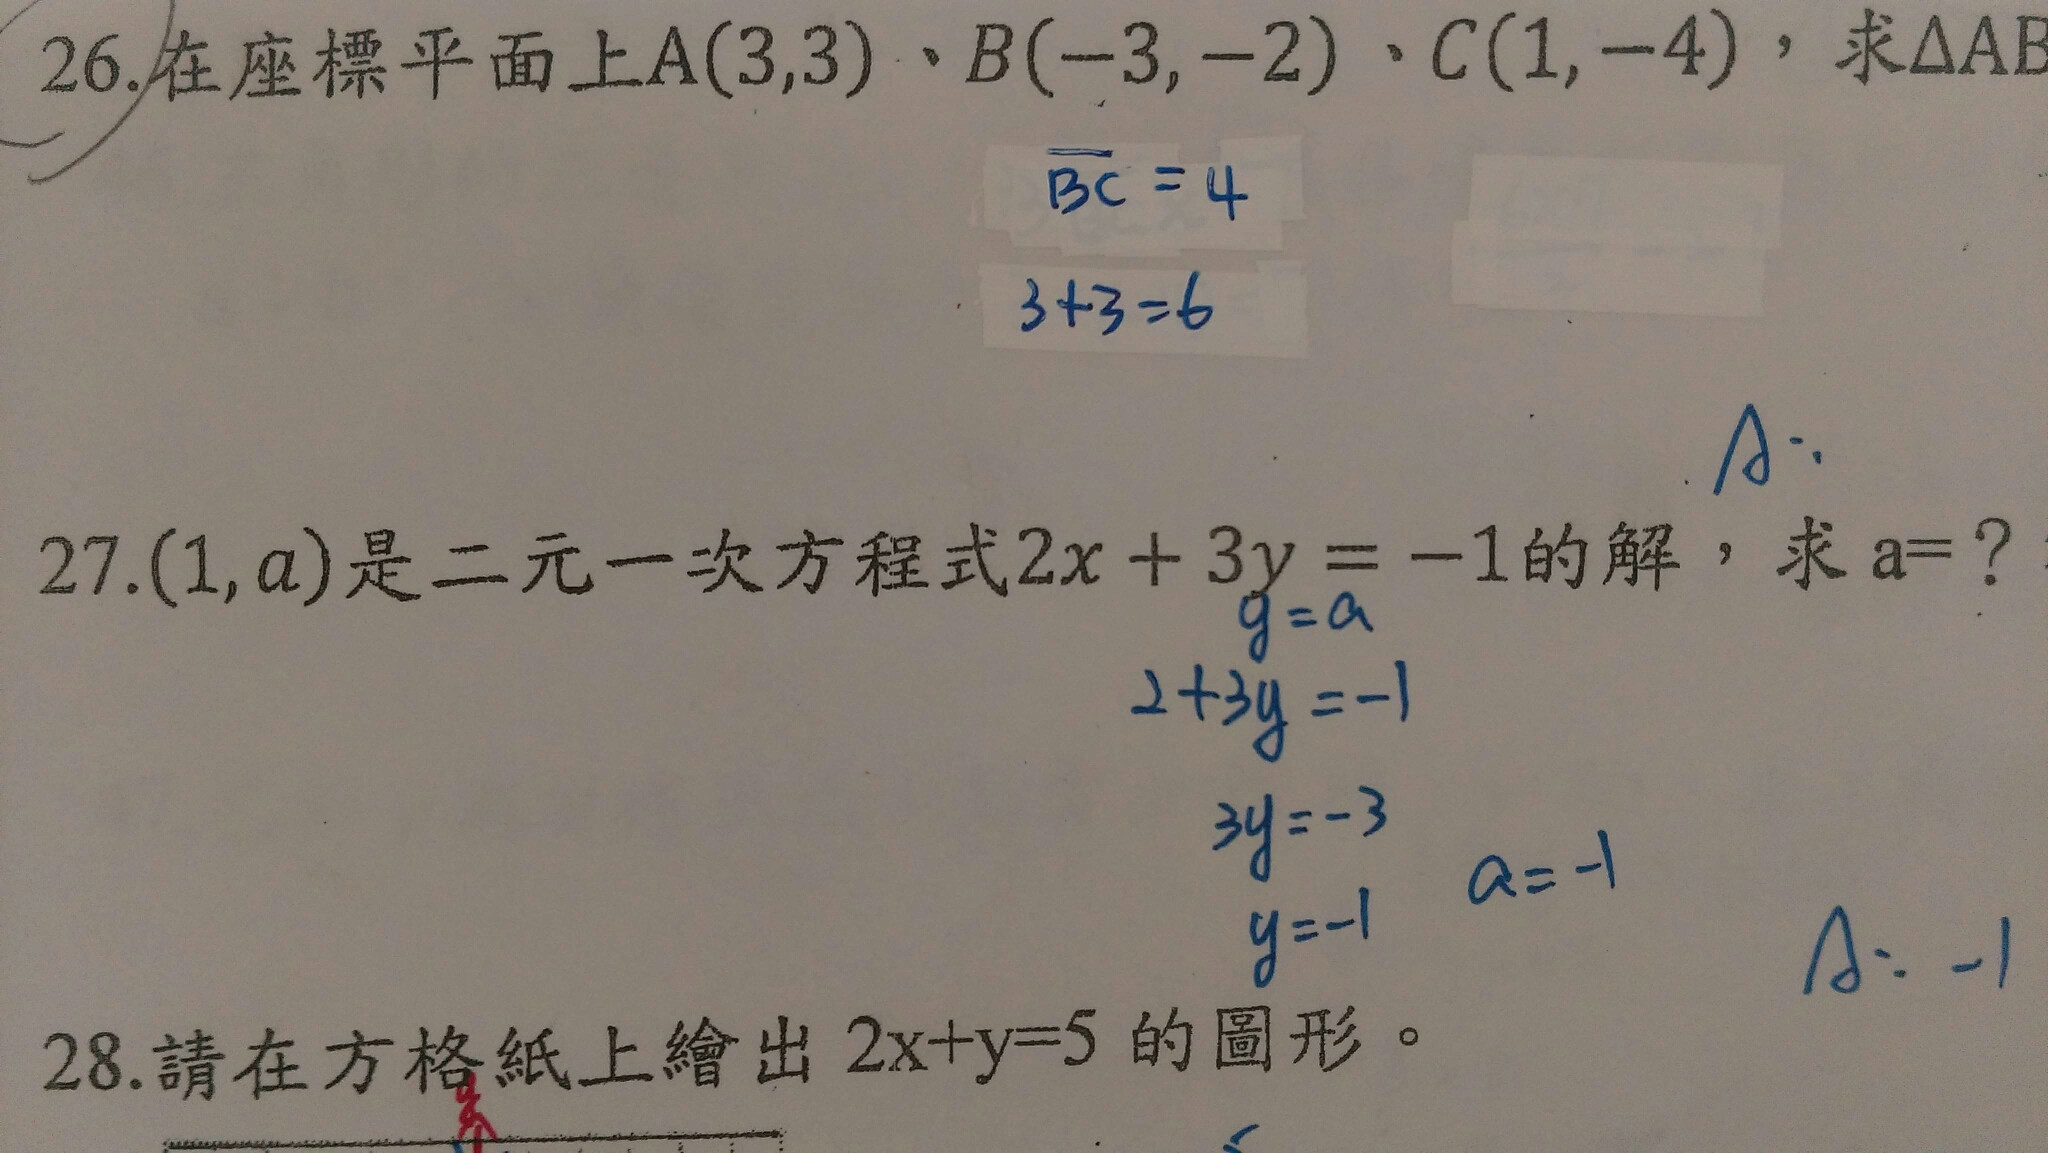 26.在座標平面上A(3,3)、B(−3,−2)、C(1,−4)，求ΔAB
BC = 4
3+3=6
A:
27.(1,a)是二元一次方程式2x + 3y = −1的解，求 a=?
y=a
2+3y=-1
3y=-3
a=-1
y=-1
A: -1
28.請在方格紙上繪出 2x+y=5 的圖形。
y